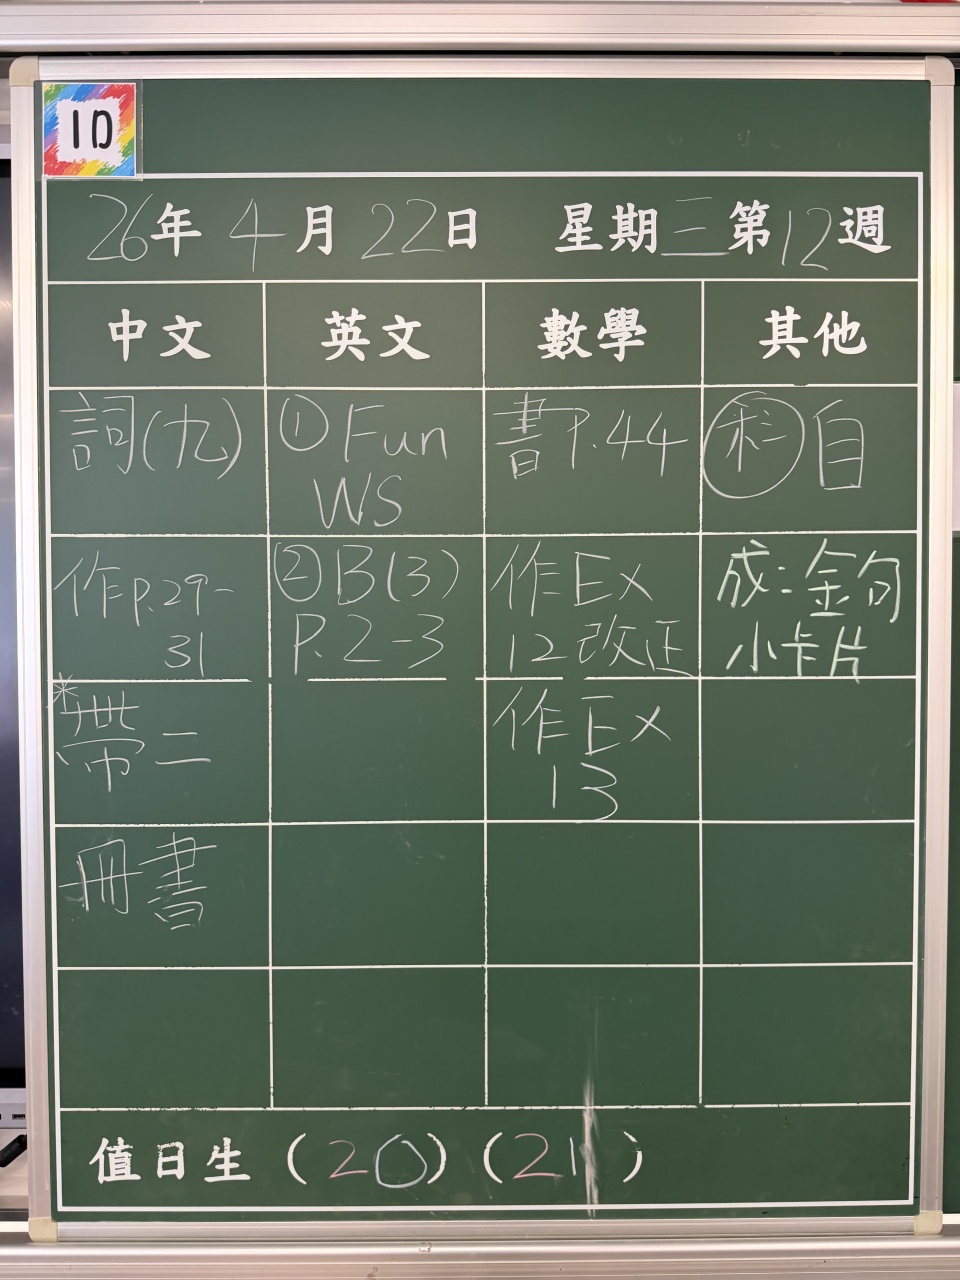 1D
26年4月22日 星期三第12週
中文 英文 數學 其他
詞(九)
作p.29-
31
*帶二
冊書
① Fun
WS
② B(3)
P.2-3
書P.44
作Ex
12改正
作Ex
13
科 自
成:金句
小卡片
值日生(20)(21)